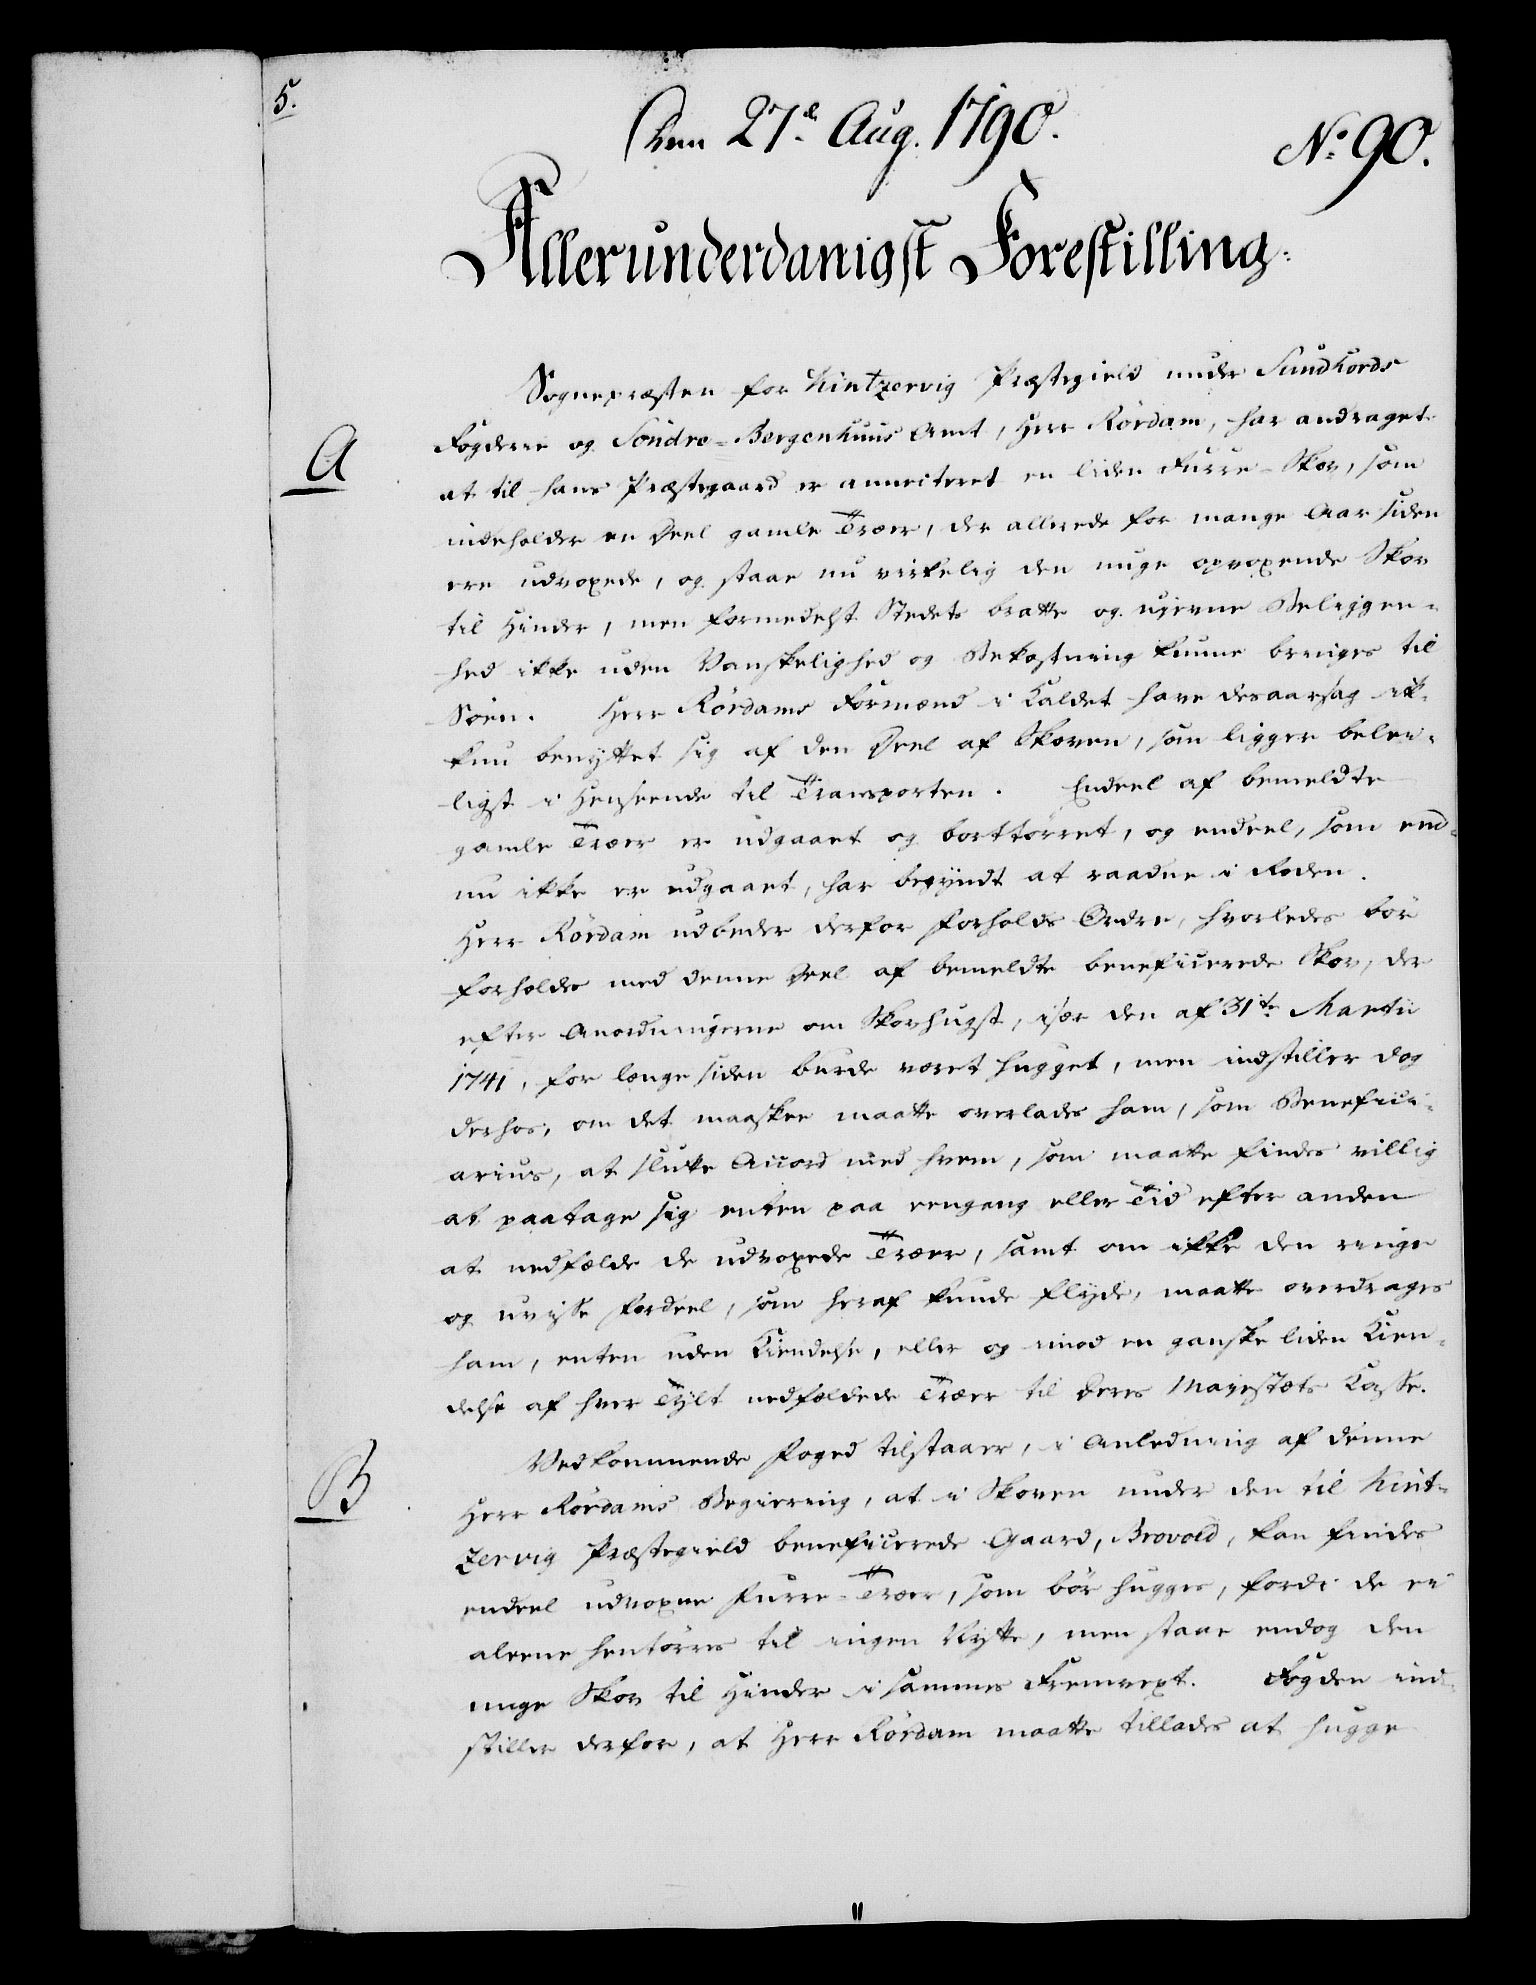 5.
Den 27de Aug. 1790.
No 90.
Allerunderdanigst Forestilling.
Sognepræsten for Kintzervig Præstegield under Sundhords
A
Fogderie og Söndre-Bergenhuus Amt, Herr Rördam, har andraget
at til hans Præstegaard er annecteret en liden Furre-Skov, som
indeholder en Deel gamle Træer, der allerede for mange Aar siden
ere udvoxede, og staae nu virkelig den unge opvoxende Skov
til Hinder, men formedelst Stedets bratte og ujevne Beliggen-
hed ikke uden Vanskelighed og Bekostning kunne bringes til
Søen. Herr Rördams Formænd i Kaldet have desaarsag ik-
kun benyttet sig af den Deel af Skoven, som ligger belei-
ligst i Henseende til Transporten. Endeel af bemeldte
gamle Træer er udgaaet og borttørret, og endeel, som end-
nu ikke er udgaaet, har begyndt at raadne i Roden.
Herr Rördam udbeder derfor Forholds Ordre, hvorledes bör
forholdes med denne Deel af bemeldte beneficerede Skov, der
efter Anordningerne om Skovhugst, især den af 31te Martii
1741, for længe siden burde været hugget, men indstiller dog
derhos, om det maaskee maatte overlades ham, som Benefici-
arius, at slutte Accord med hvem, som maatte findes villig
at paatage sig enten paa eengang eller Tid efter anden
at nedfælde de udvoxede Træer, samt om ikke den ringe
og uvisse Fordeel, som heraf kunde flyde, maatte overdrages
ham, enten uden Kiendelse, eller og imod en ganske liden Kien-
delse af hver Tylt nedfældede Træer til Deres Majestæts Casse.
B
Vedkommende Foged tilstaaer, i Anledning af denne
Herr Rördams Begiering, at i Skoven under den til Kint-
zervig Præstegield beneficerede Gaard, Brovold, kan findes
endeel udvoxne Furre-Træer, som bör hugges, fordi de ei
aleene hentörres til ingen Nytte, men staae endog den
unge Skov til Hinder i sammes Fremvext. Fogden ind-
stiller derfor, at Herr Rördam maatte tillades at hugge